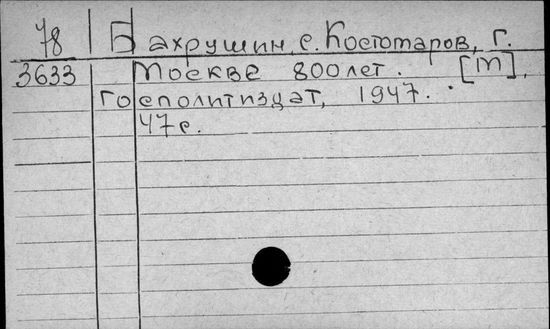 78 Бахрушин, с. Костомаров, г.
3633 Москве 800 лет. [М],
Госполитиздат, 1947.
47 с.